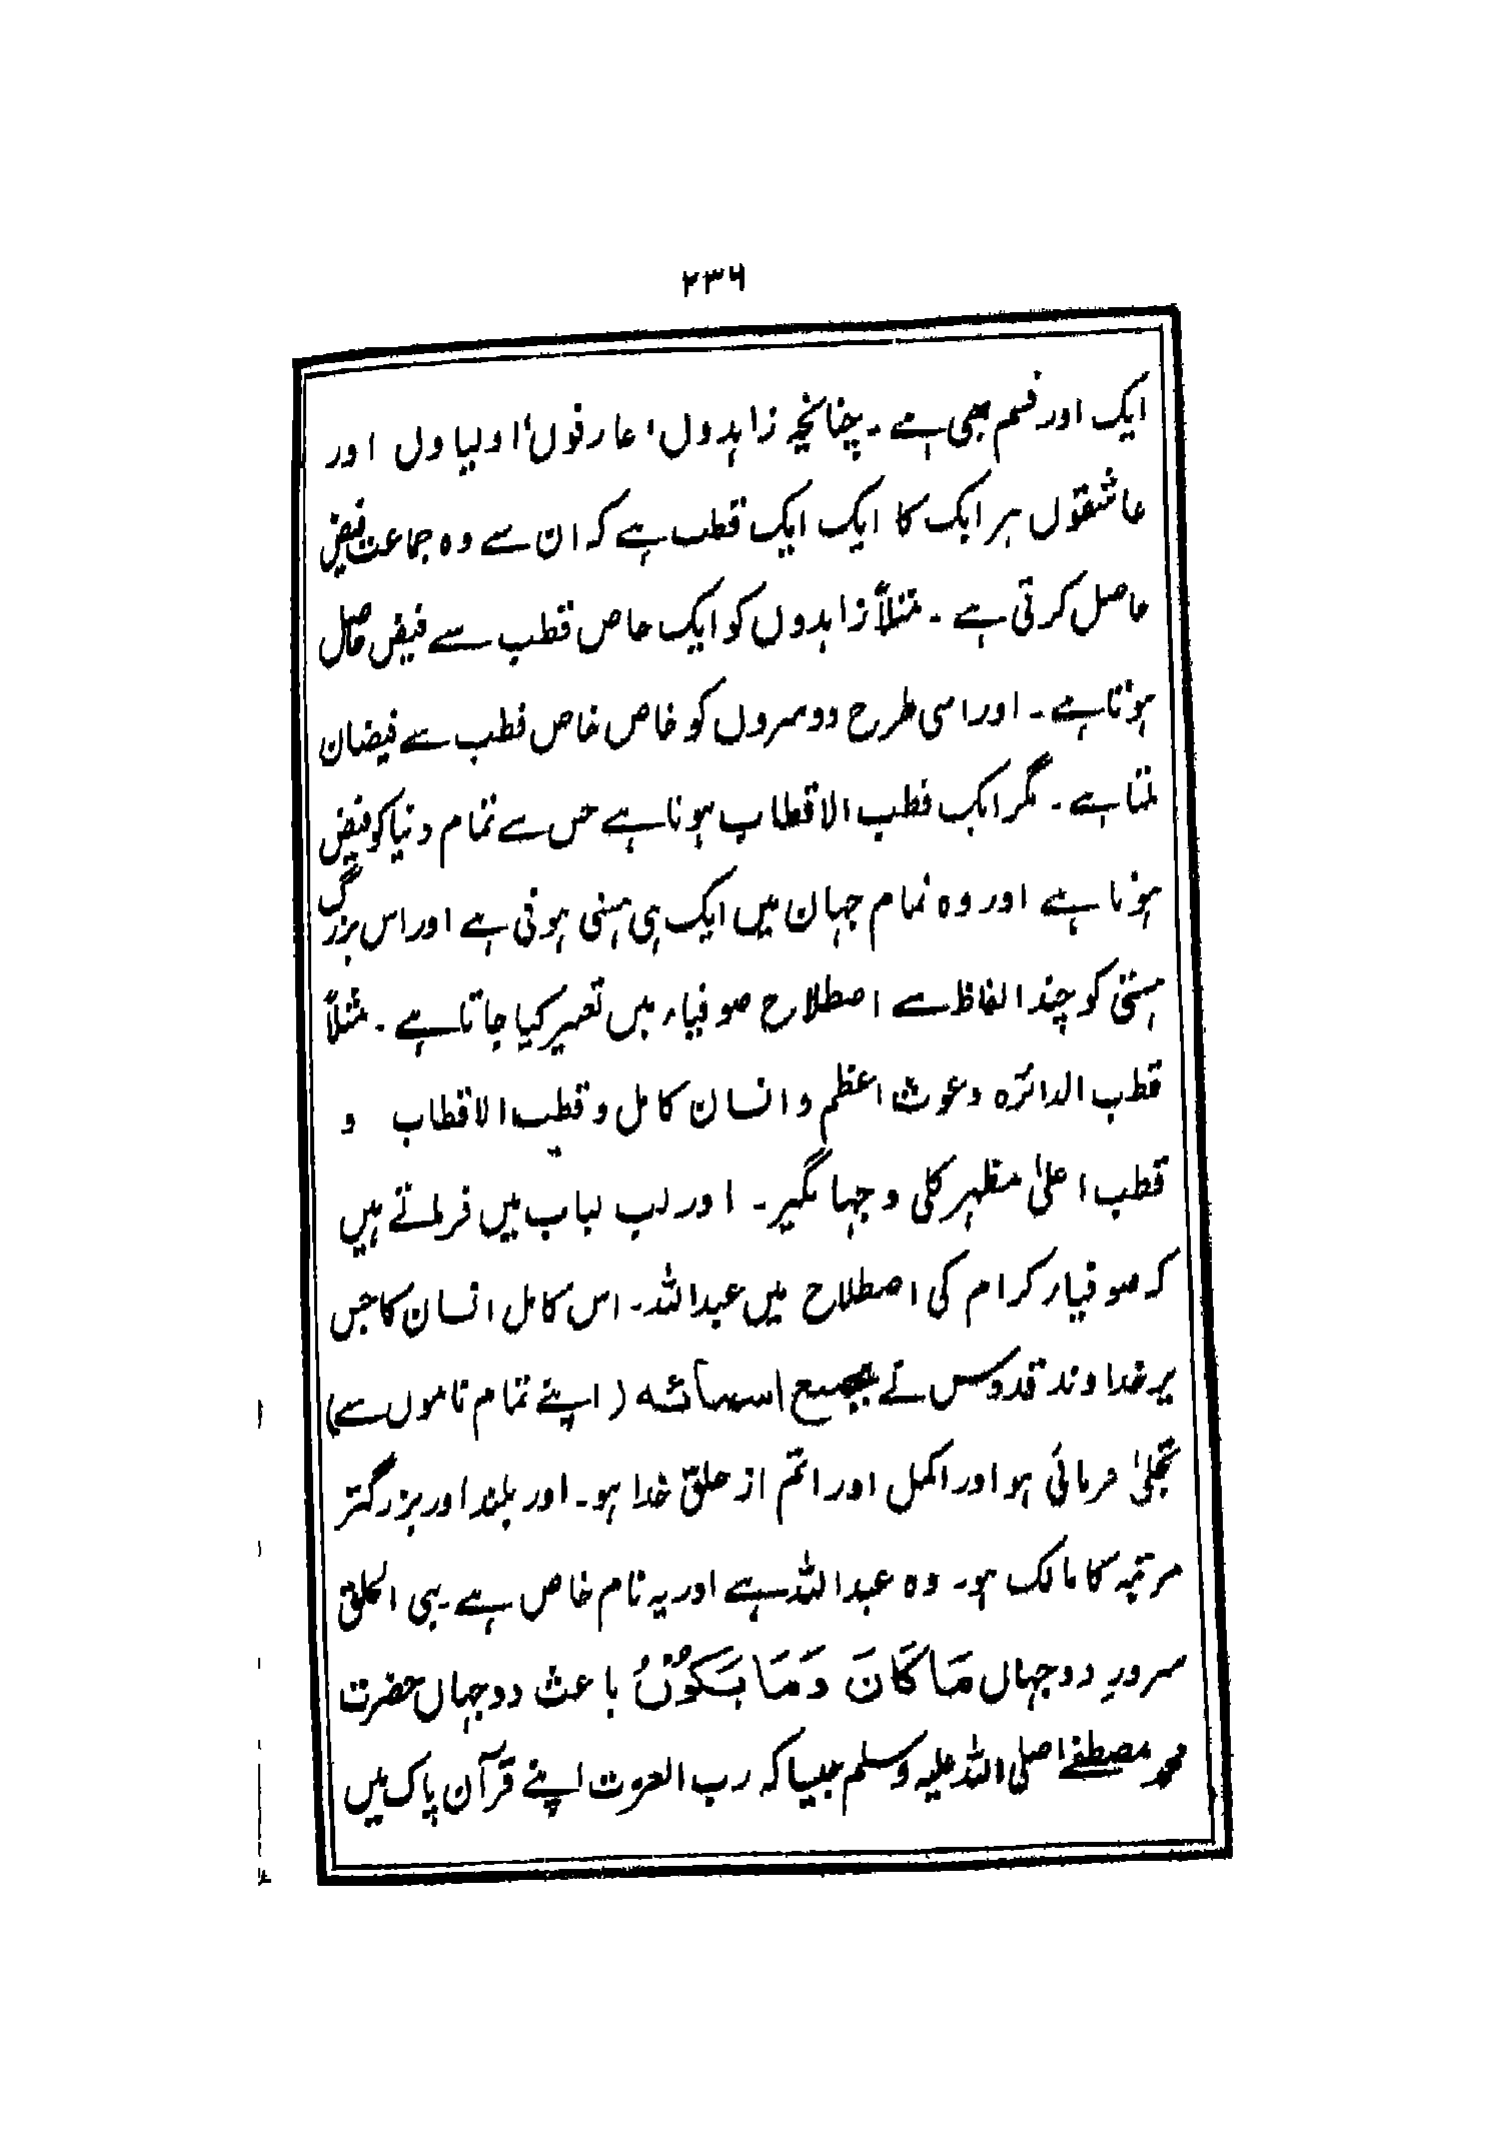 ۲۳۶
ایک اور قسم بھی ہے۔ چنانچہ زاہدوں، عارفوں، اولیاوں اور
عاشقوں ہر ایک کا ایک ایک قطب ہے کہ ان سے وہ جماعت فیض
حاصل کرتی ہے۔ مثلاً زاہدوں کو ایک خاص قطب سے فیض حاصل
ہوتا ہے۔ اور اسی طرح دوسروں کو خاص خاص قطب سے فیضان
ملتا ہے۔ مگر ایک قطب الاقطاب ہوتا ہے جس سے تمام دنیا کو فیض
ہوتا ہے اور وہ تمام جہان میں ایک ہی ہستی ہوتی ہے اور اس بزرگ
ہستی کو چند الفاظ سے اصطلاح صوفیاء میں تعبیر کیا جاتا ہے۔ مثلاً
قطب الدائرہ وغوث اعظم و انسان کامل و قطب الاقطاب و
قطب اعلیٰ مظہر کلی و جہانگیر۔ اور لب لباب میں فرماتے ہیں
کہ صوفیار کرام کی اصطلاح میں عبداللہ۔ اس کامل انسان کا جس
پر خداوند قدوس نے بجمیع اسمائہ (اپنے تمام ناموں سے)
تجلیٰ فرمائی ہو اور اکمل اور اتم از خلق خدا ہو۔ اور بلند اور بزرگتر
مرتبہ کا مالک ہو۔ وہ عبداللہ ہے اور یہ نام خاص ہے۔ نبی الخلق
سرورِ دوجہاں مَا كَانَ وَمَا يَكُوْنُ باعث دوجہاں حضرت
محمد مصطفےٰ صلی اللہ علیہ وسلم جیسا کہ رب العزت اپنے قرآن پاک میں